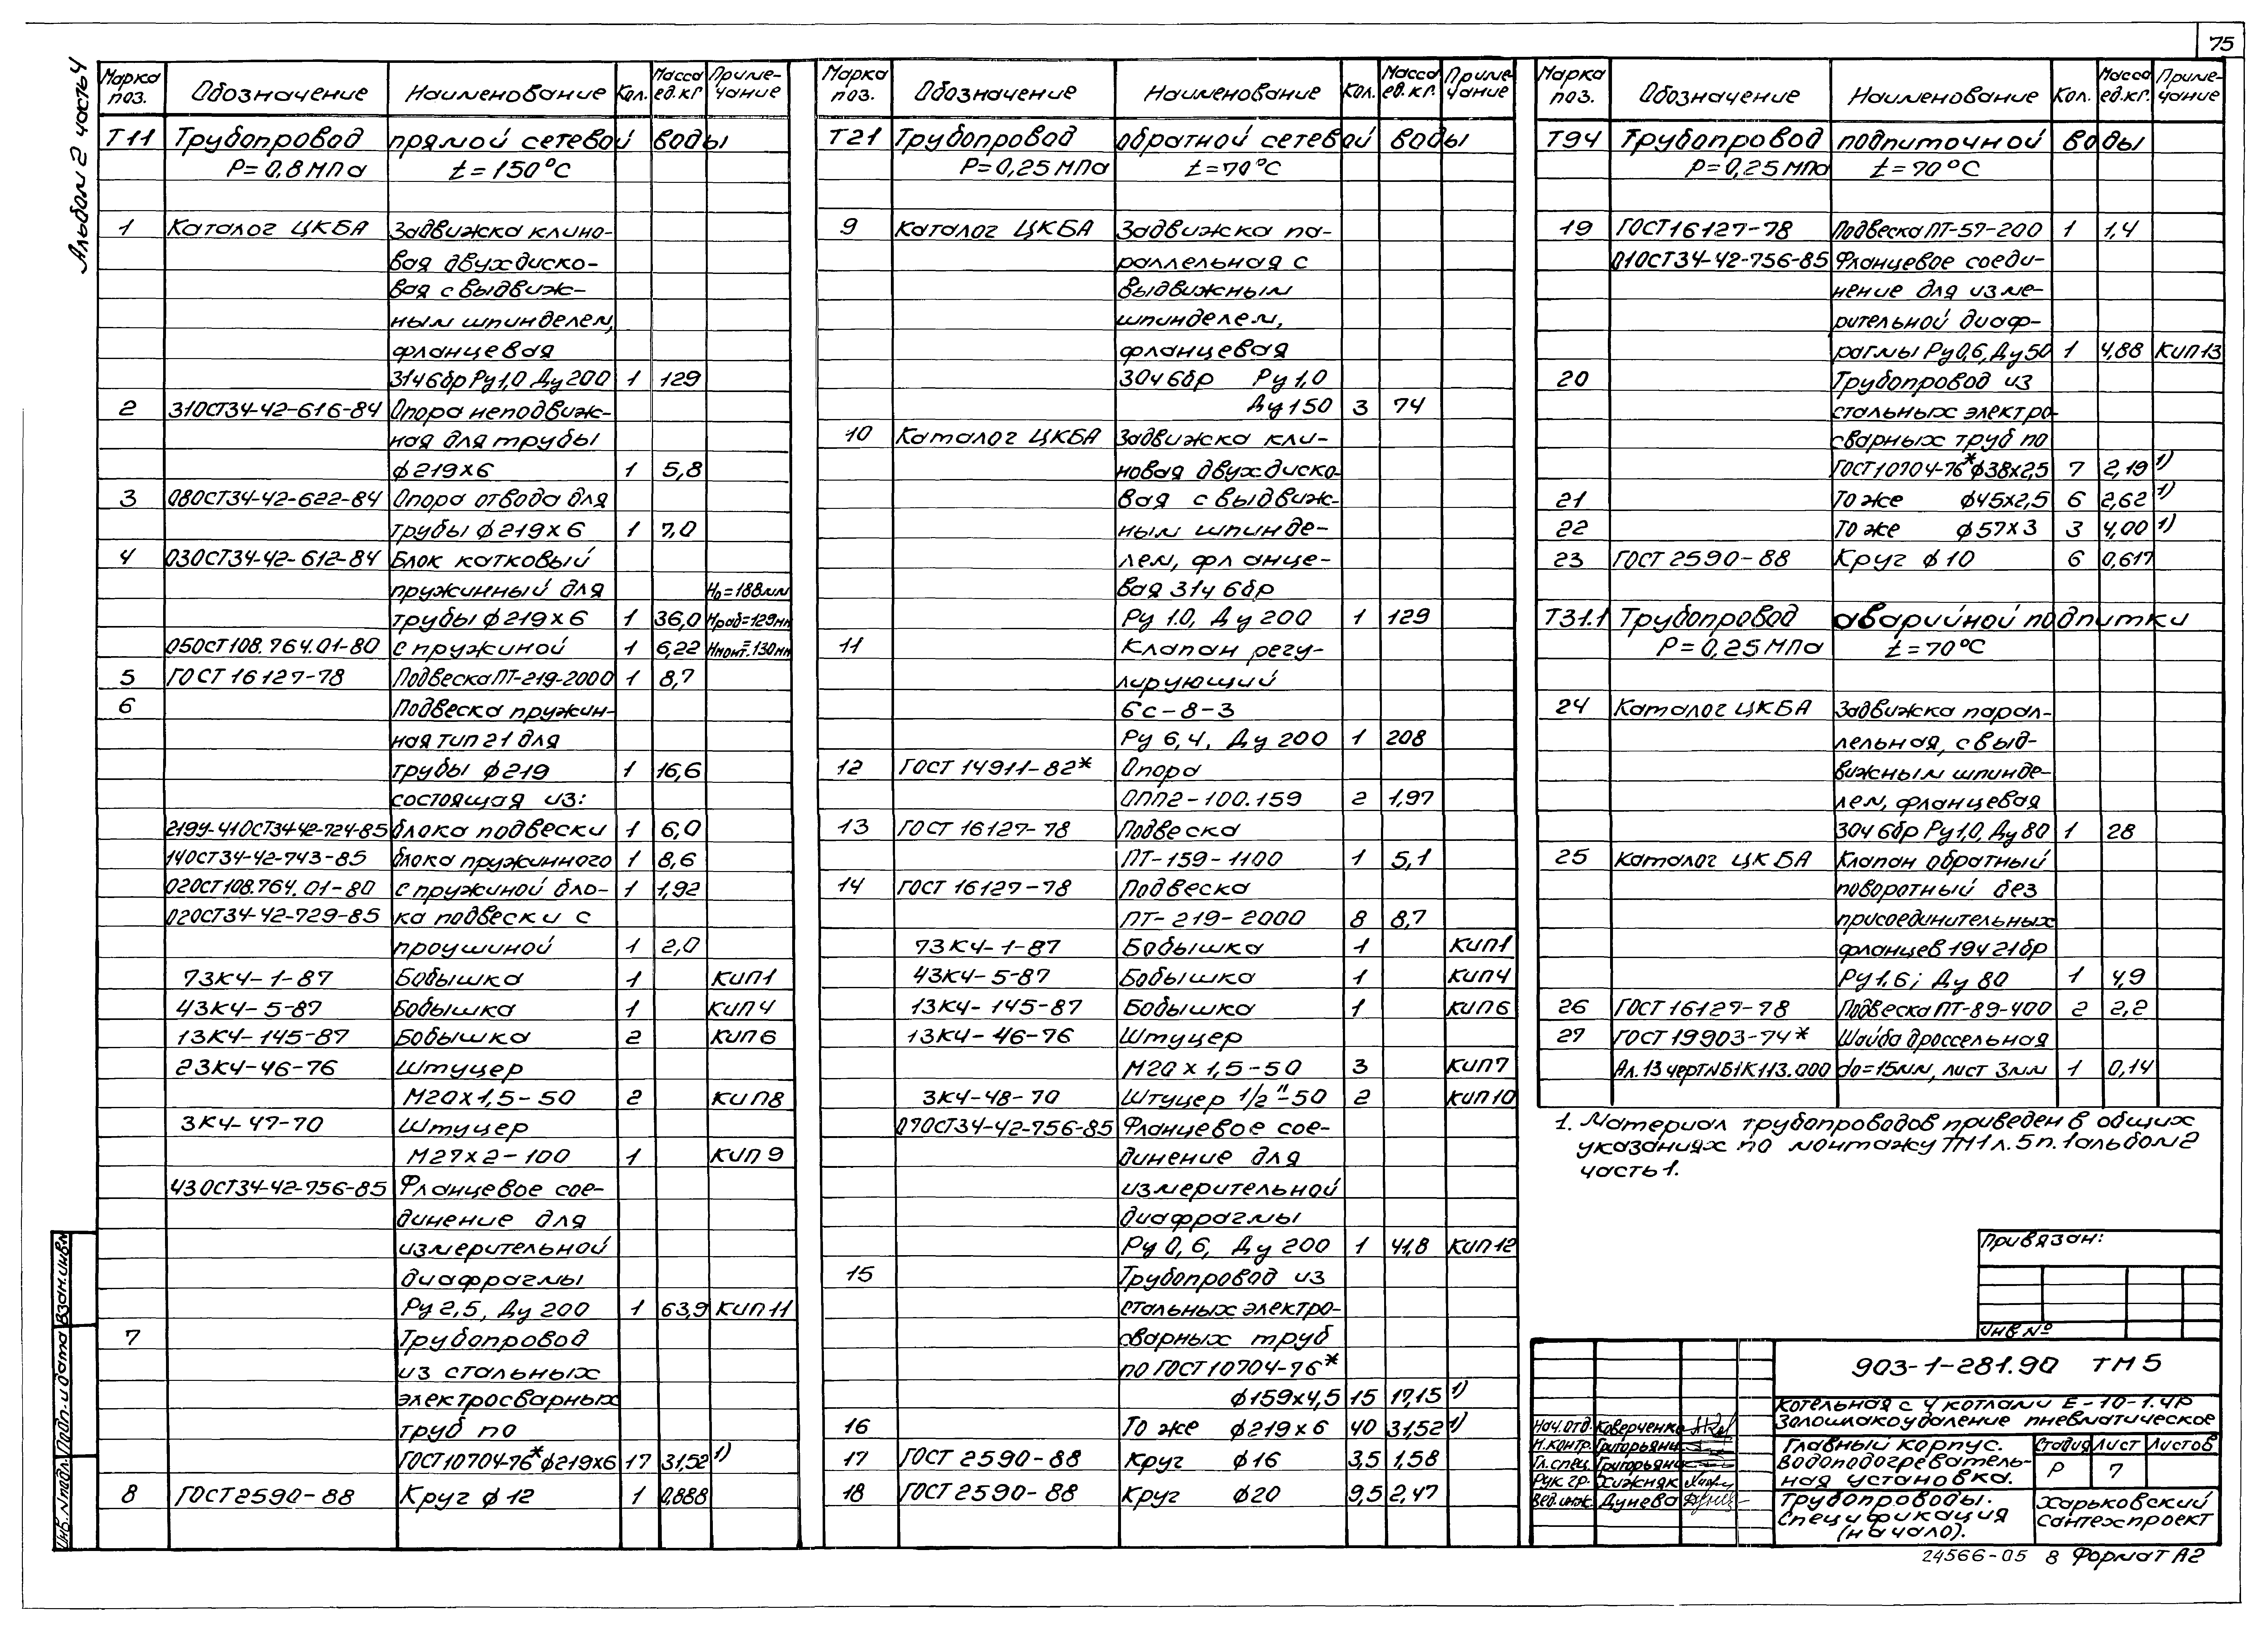 75
Альбом 2 часть 4
Марка поз. Обозначение Наименование Кол. Масса ед.кг Приме-чание
Т11 Трубопровод прямой сетевой воды
Р=0,8 МПа t=150°С
1 Каталог ЦКБА Задвижка клино-
вая двухдиско-
вая с выдвиж-
ным шпинделем,
фланцевая
31ч6бр Ру1,0 Ду200 1 129
2 31ОСТ34-42-616-84 Опора неподвиж-
ная для трубы
ф219х6 1 5,8
3 08ОСТ34-42-622-84 Опора отвода для
трубы ф219х6 1 7,0
4 03ОСТ34-42-612-84 Блок катковый
пружинный для Н₀=188мм
трубы ф219х6 1 36,0 Нраб=129мм
05ОСТ108.764.01-80 с пружиной 1 6,22 Нмонт.=130мм
5 ГОСТ 16127-78 Подвеска ПТ-219-2000 1 8,7
6 Подвеска пружин-
ная тип 21 для
трубы ф219 1 16,6
состоящая из:
219У-41ОСТ3442-724-85 блока подвески 1 6,0
14ОСТ34-42-743-85 блока пружинного 1 8,6
02ОСТ108.764.01-80 с пружиной бло- 1 1,92
02ОСТ34-42-729-85 ка подвески с
проушиной 1 2,0
73К4-1-87 Бобышка 1 КИП1
43К4-5-87 Бобышка 1 КИП4
13К4-145-87 Бобышка 2 КИП6
23К4-46-76 Штуцер
М20х1,5-50 2 КИП8
3К4-47-70 Штуцер
М27х2-100 1 КИП9
43ОСТ34-42-756-85 Фланцевое сое-
динение для
измерительной
диафрагмы
Ру2,5, Ду200 1 63,9 КИП11
7 Трубопровод
из стальных
электросварных
труб по
ГОСТ10704-76* ф219х6 17 31,52 1)
8 ГОСТ2590-88 Круг ф12 1 0,888
Марка поз. Обозначение Наименование Кол. Масса ед.кг. Приме-чание
Т21 Трубопровод обратной сетевой воды
Р=0,25 МПа t=70°С
9 Каталог ЦКБА Задвижка па-
раллельная с
выдвижным
шпинделем,
фланцевая
30ч6бр Ру1,0
Ду150 3 74
10 Каталог ЦКБА Задвижка кли-
новая двухдиско-
вая с выдвиж-
ным шпинде-
лем, фланце-
вая 31ч6бр
Ру1.0, Ду200 1 129
11 Клапан регу-
лирующий
6с-8-3
Ру6,4, Ду200 1 208
12 ГОСТ 14911-82* Опора
ОПП2-100.159 2 1,97
13 ГОСТ 16127-78 Подвеска
ПТ-159-1100 1 5,1
14 ГОСТ 16127-78 Подвеска
ПТ-219-2000 8 8,7
73К4-1-87 Бобышка 1 КИП1
43К4-5-87 Бобышка 1 КИП4
13К4-145-87 Бобышка 1 КИП6
13К4-46-76 Штуцер
М20х1,5-50 3 КИП7
3К4-48-70 Штуцер 1/2"-50 2 КИП10
07ОСТ34-42-756-85 Фланцевое сое-
динение для
измерительной
диафрагмы
Ру0,6, Ду200 1 41,8 КИП12
15 Трубопровод из
стальных электро-
сварных труб
по ГОСТ10704-76*
ф159х4,5 15 17,15 1)
16 То же ф219х6 40 31,52 1)
17 ГОСТ 2590-88 Круг ф16 3,5 1,58
18 ГОСТ 2590-88 Круг ф20 9,5 2,47
Марка поз. Обозначение Наименование Кол. Масса ед.кг. Приме-чание
Т94 Трубопровод подпиточной воды
Р=0,25 МПа t=70°С
19 ГОСТ16127-78 Подвеска ПТ-57-200 1 1,4
01ОСТ34-42-756-85 Фланцевое соеди-
нение для изме-
рительной диаф-
рагмы Ру0,6, Ду50 1 4,88 КИП13
20 Трубопровод из
стальных электро-
сварных труб по
ГОСТ10704-76* ф38х2,5 7 2,19 1)
21 То же ф45х2,5 6 2,62 1)
22 То же ф57х3 3 4,00 1)
23 ГОСТ 2590-88 Круг ф10 6 0,617
Т31.1 Трубопровод аварийной подпитки
Р=0,25 МПа t=70°С
24 Каталог ЦКБА Задвижка парал-
лельная, с выд-
вижным шпинде-
лем, фланцевая
30ч6бр Ру1,0, Ду80 1 28
25 Каталог ЦКБА Клапан обратный
поворотный без
присоединительных
фланцев 19ч21бр
Ру1,6; Ду80 1 4,9
26 ГОСТ 16127-78 Подвеска ПТ-89-400 2 2,2
27 ГОСТ 19903-74* Шайба дроссельная
Ал.13 черт№Б1К113.000 dо=15мм, лист 3мм 1 0,14
1. Материал трубопроводов приведен в общих
указаниях по монтажу ТМ1 л.5 п.1 альбом 2
часть 1.
Привязан:
Инв №
903-1-281.90 ТМ5
Котельная с 4 котлами Е-10-1.4Р
Золошлакоудаление пневматическое
Нач.отд. Коверченко
Н.контр. Григорьянц
Гл.спец. Григорьянц
Рук.гр. Хижняк
Вед.инж. Дунева
Главный корпус.
Водоподогреватель-
ная установка.
Стадия Лист Листов
Р 7
Трубопроводы.
Спецификация
(начало).
Харьковский
Сантехпроект
24566-05 8 Формат А2
Инв.№подл. Подп. и дата Взам.инв№